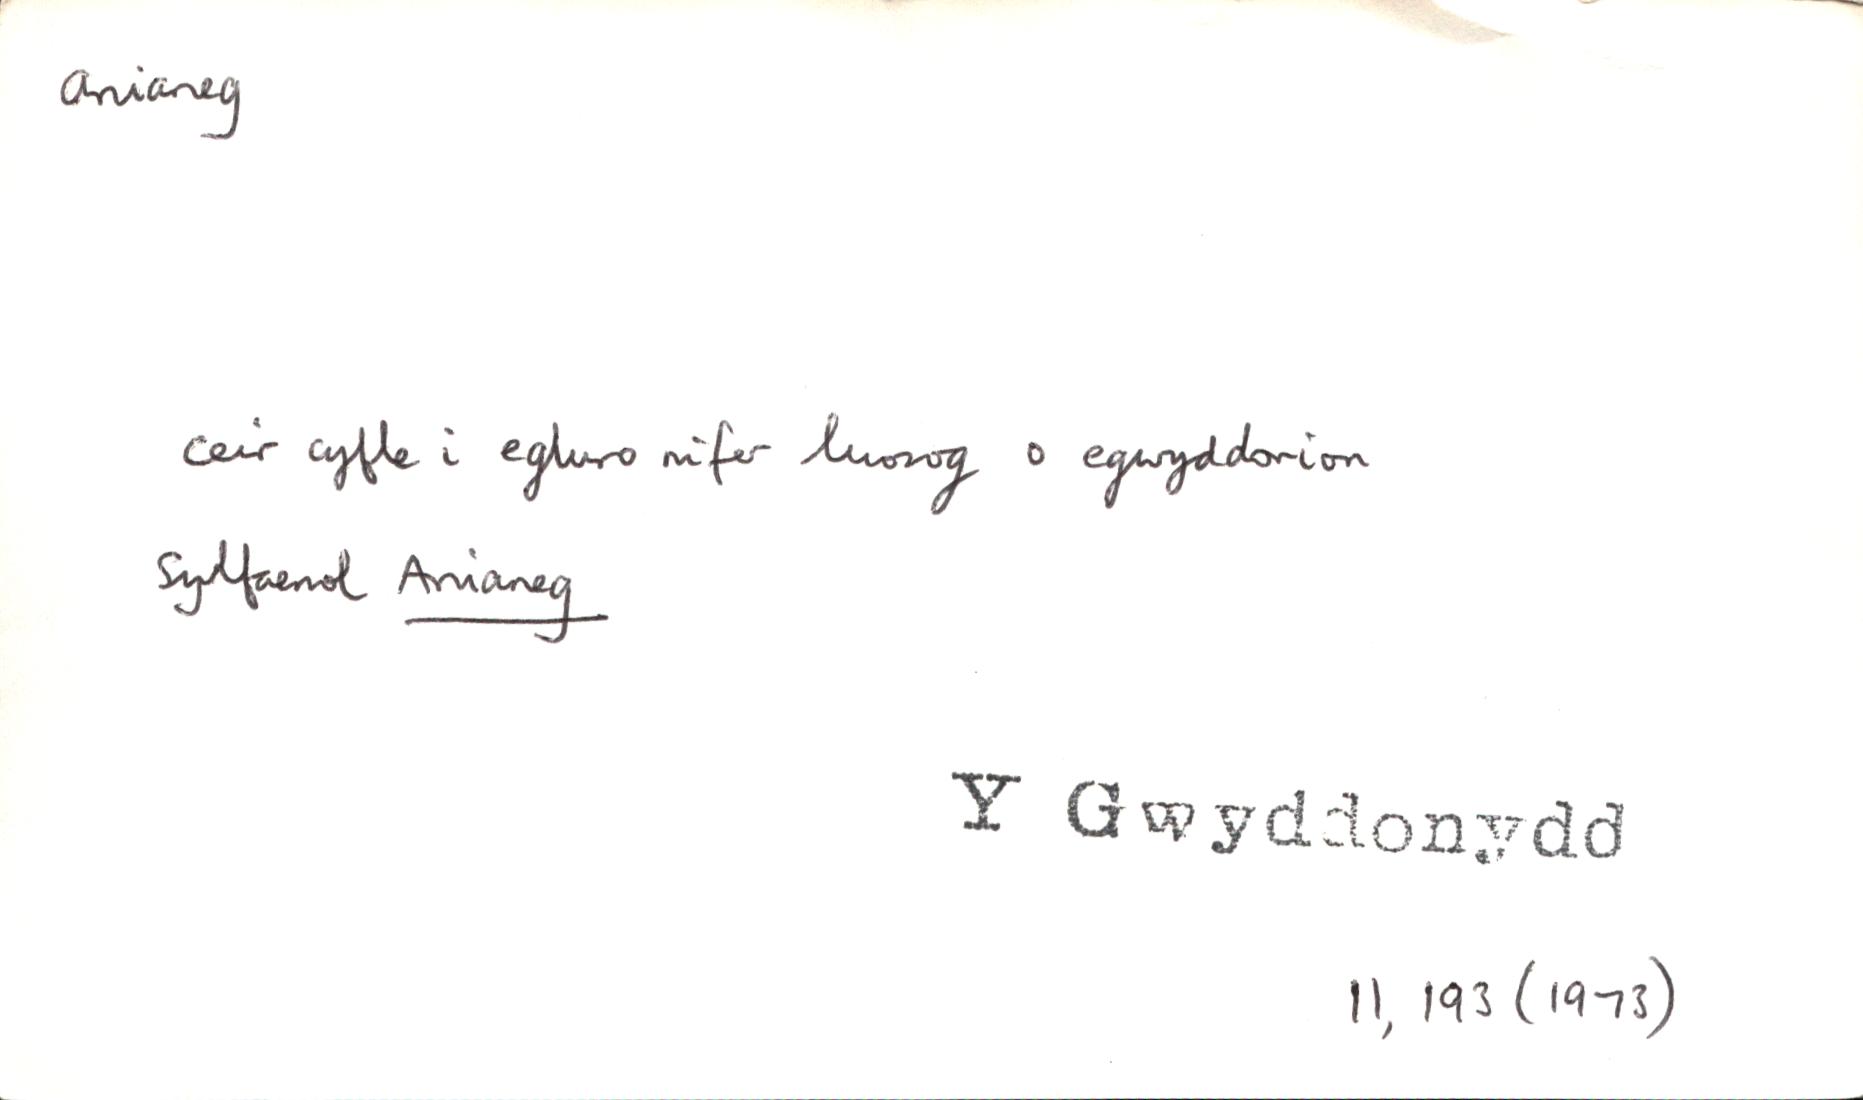 Anianeg
ceir cyfle i egluro nifer luosog o egwyddorion
Sylfaenol Anianeg
Y Gwyddonydd
11, 193 (1973)